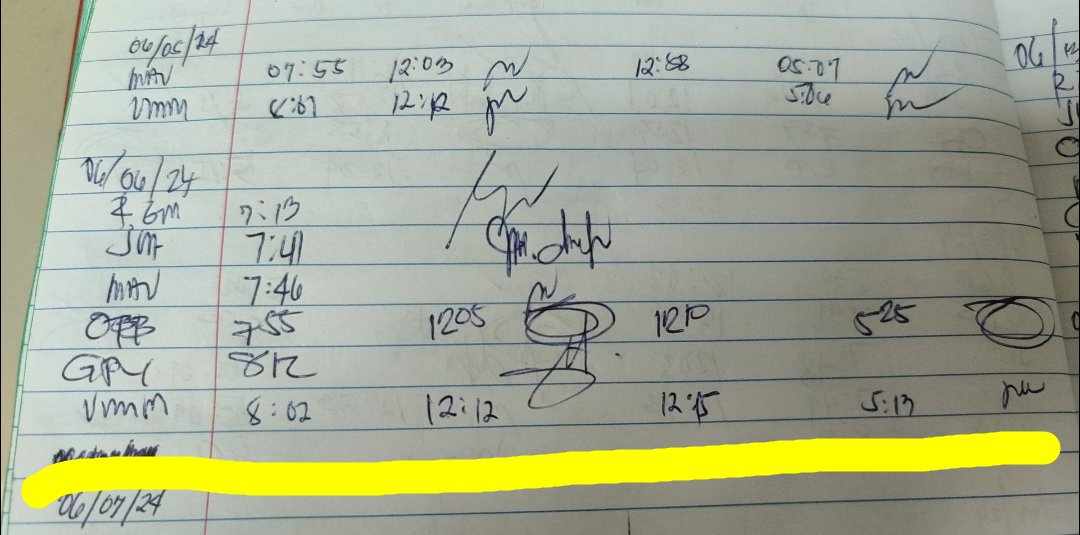 06/05/24
MAV 07:55 12:03 12:58 05:07
VMM 8:01 12:12 5:06
06/06/24
7:13
JM 7:41
MAV 7:46
OPB 755 1205 1210 525
GPY 812
VMM 8:02 12:12 12:15 5:13
06/07/24
06/